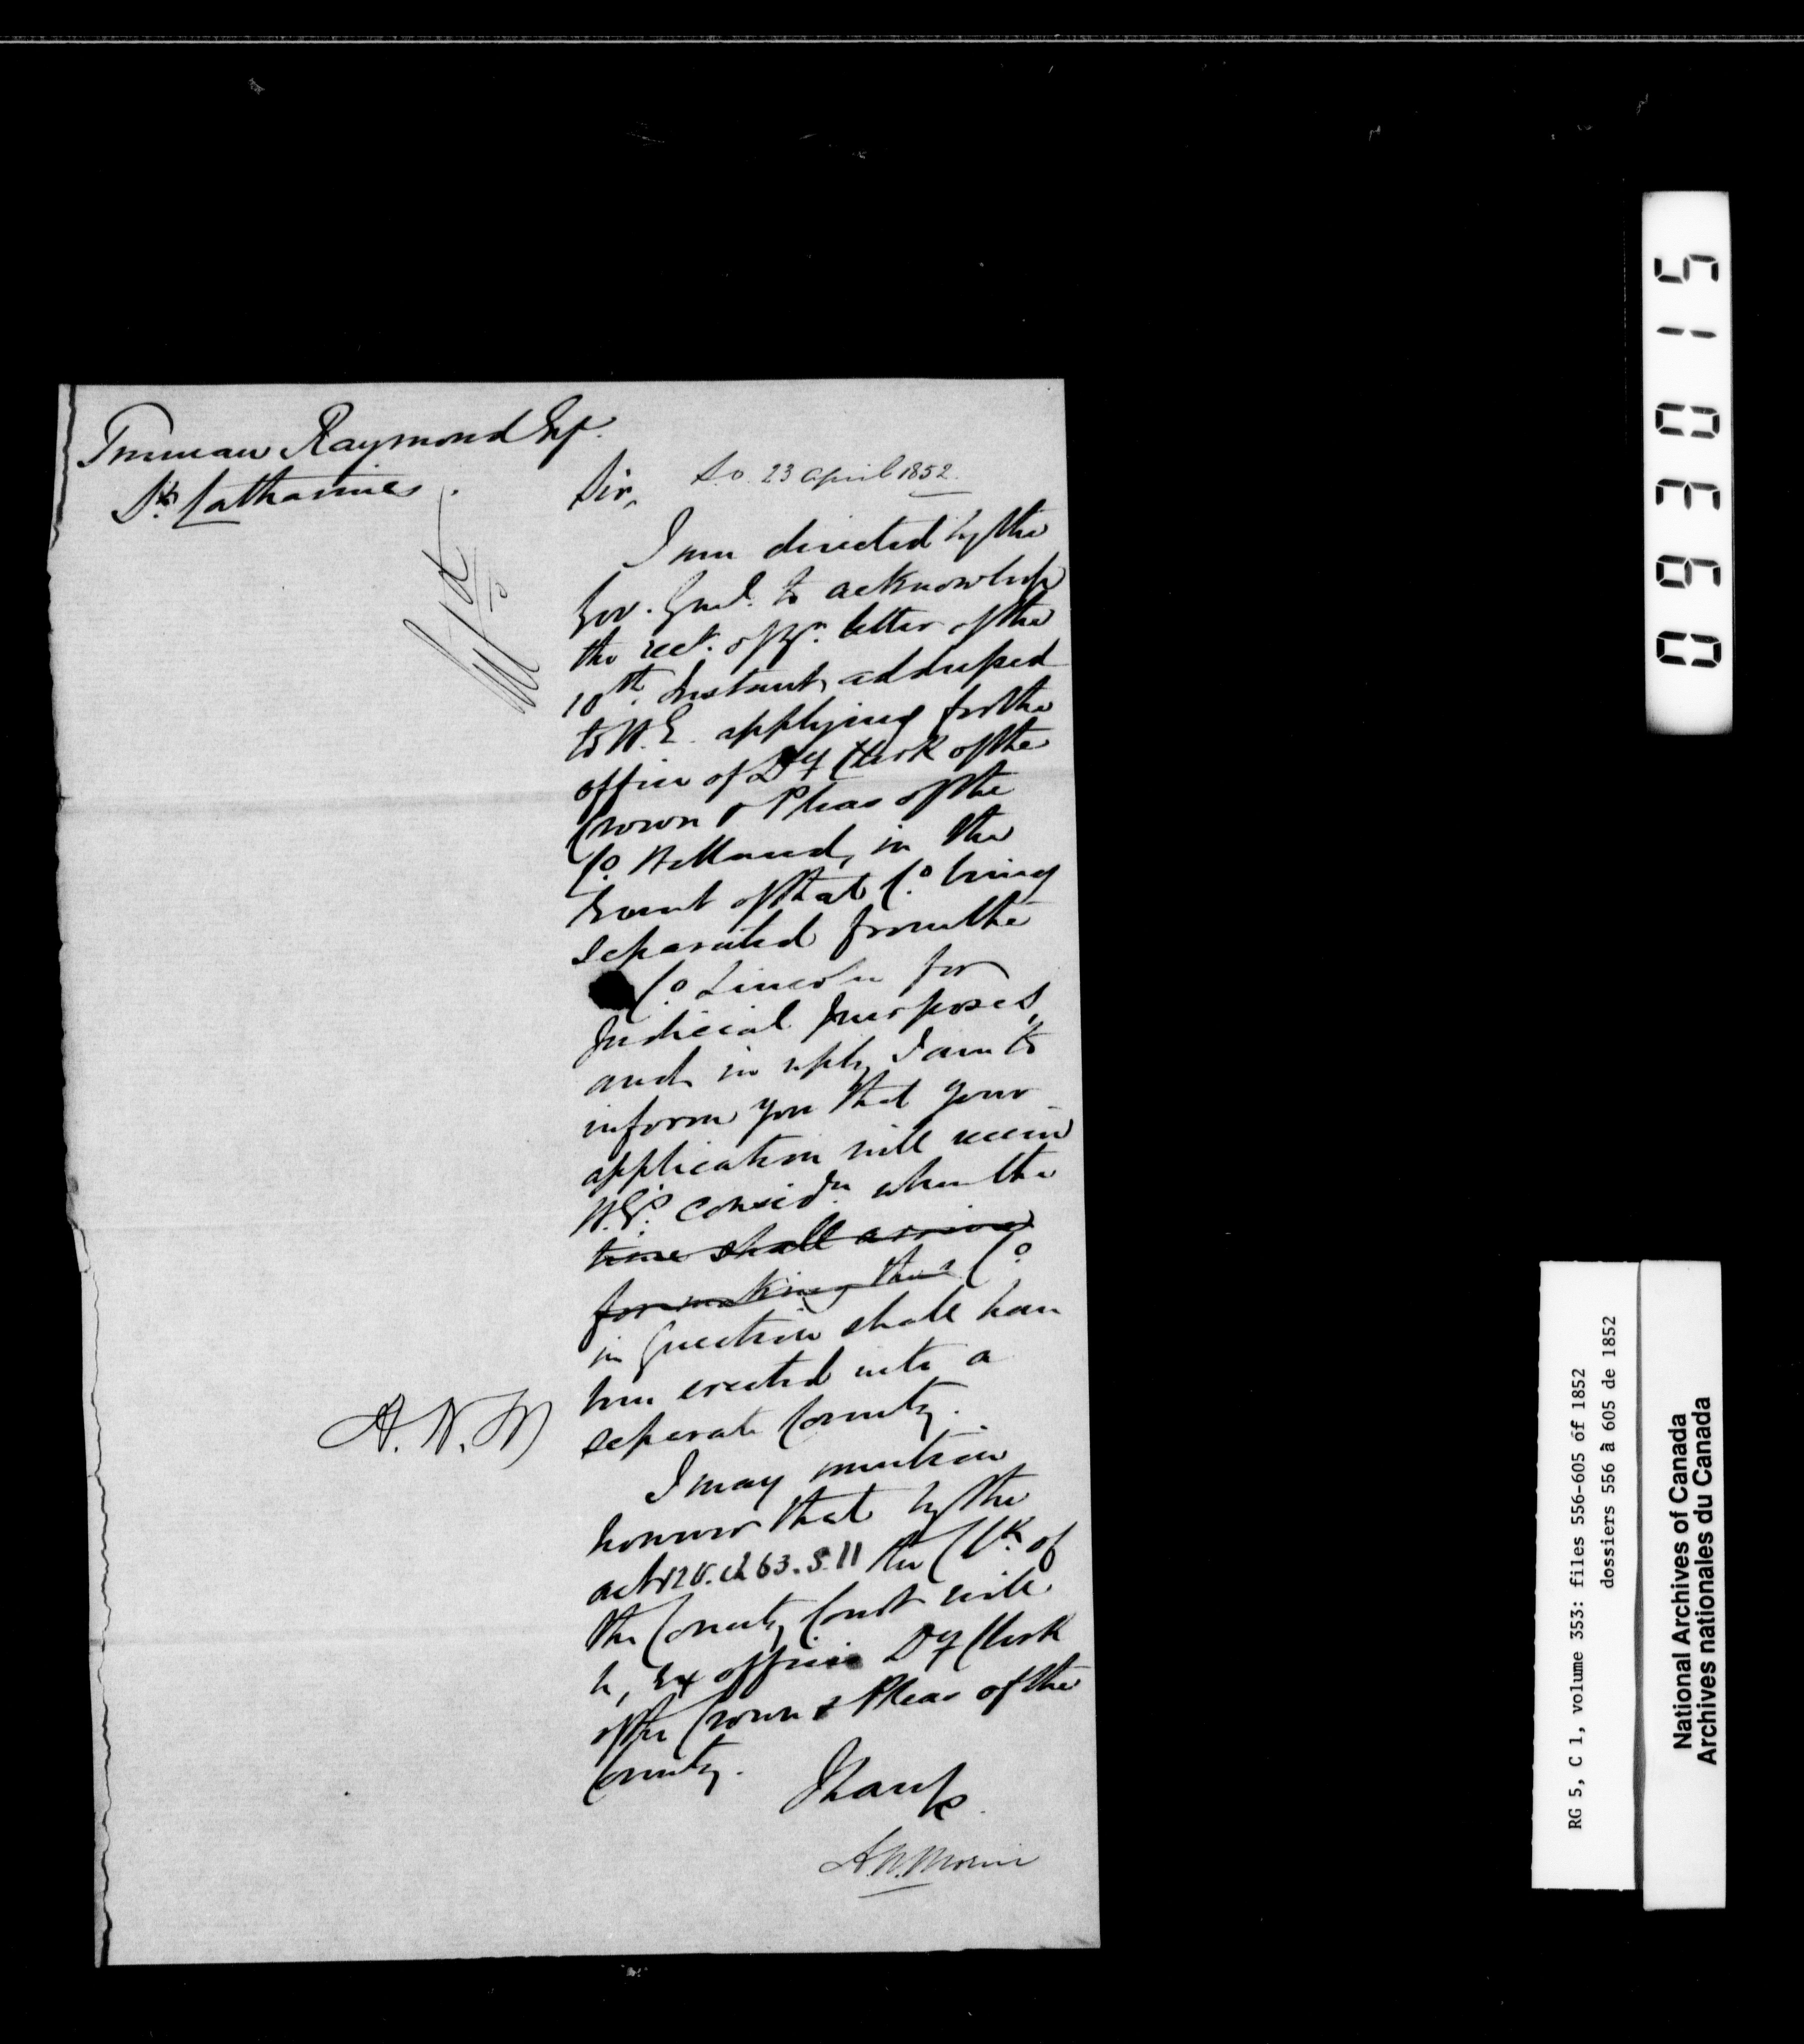 Truman Raymond Esq.
St. Catharines.
S.O. 23 April 1852.
Sir,
I am directed by the
Gov. Genl. to acknowledge
the rect. of yr. letter of the
10th. Instant, addressed
to H.E. applying for the
office of Dy Clerk of the
Crown & Pleas of the
Co. Welland, in the
Event of that Co. being
separated from the
Co. Lincoln for
Judicial purposes,
and in reply I am to
inform you that your
application will receive
H.E's. considn. when the
time shall arrive
for making the Co.
in Question shall have
been erected into a
separate County.
A. N. M
I may mention
however that by the
act 12 V. ch 63. S. 11 the Clk. of
the County Court will
be, Ex officio Dy Clerk
of the Crown & Pleas of the
County.
I have &c.
A.N. Morin
093015
RG 5, C 1, volume 353: files 556-605 of 1852
dossiers 556 à 605 de 1852
National Archives of Canada
Archives nationales du Canada